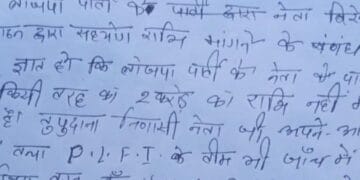 भाजपा पार्टी के द्वारा नेता
द्वारा सहयोग राशि मांगने के संबंध
ज्ञात हो कि भाजपा पार्टी के नेता के पा
किसी तरह का 2 करोड़ का राशि नहीं
है। तुपुदाना निवासी नेता जी अपने-आ
तथा P.L.F.I. के बीच भी जाँच में